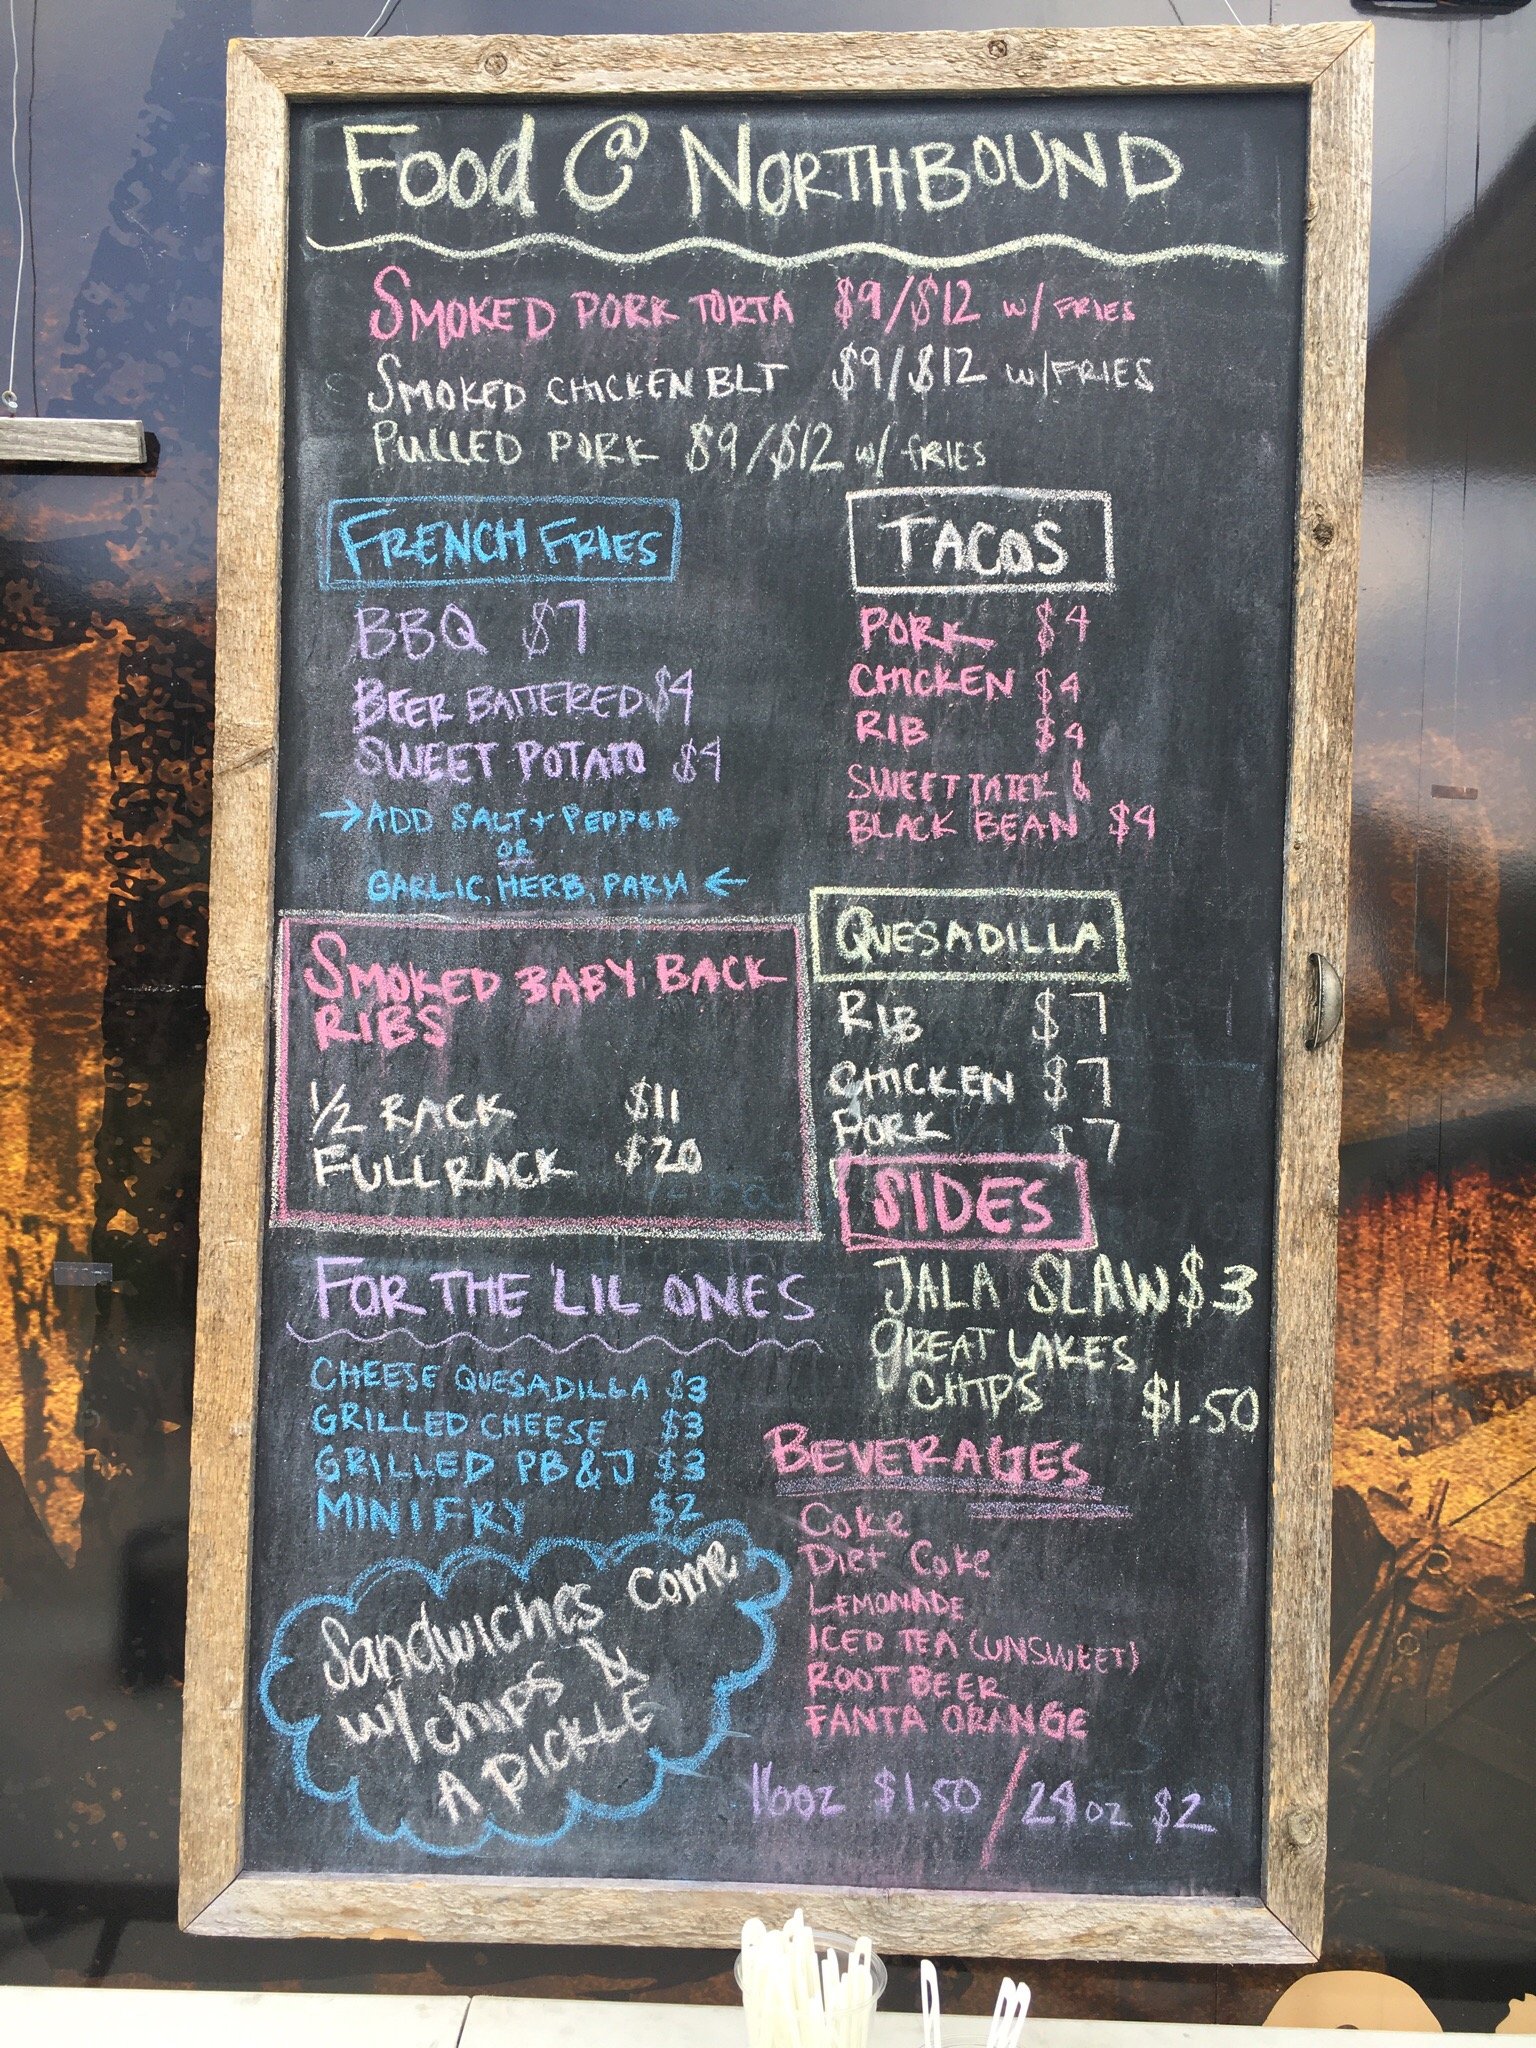 Food @ NORTHBOUND
SMOKED PORK TORTA $9/$12 W/ FRIES
SMOKED CHICKEN BLT $9/$12 W/ FRIES
PULLED PORK $9/$12 W/ fRIES
FRENCH FRIES
BBQ $7
BEER BATTERED $4
SWEET POTATO $4
→ ADD SALT + PEPPER
OR
GARLIC, HERB, PARM ←
TACOS
PORK $4
CHICKEN $4
RIB $4
SWEET TATER &
BLACK BEAN $4
SMOKED BABY BACK
RIBS
1/2 RACK $11
FULL RACK $20
QUESADILLA
RIB $7
CHICKEN $7
PORK $7
SIDES
JALA SLAW $3
GREAT LAKES
CHIPS $1.50
FOR THE 'LIL ONES
CHEESE QUESADILLA $3
GRILLED CHEESE $3
GRILLED PB & J $3
MINI FRY $2
Sandwiches come
w/ chips &
A PICKLE
BEVERAGES
Coke
Diet Coke
LEMONADE
ICED TEA (UNSWEET)
ROOT BEER
FANTA ORANGE
16oz $1.50 / 24oz $2